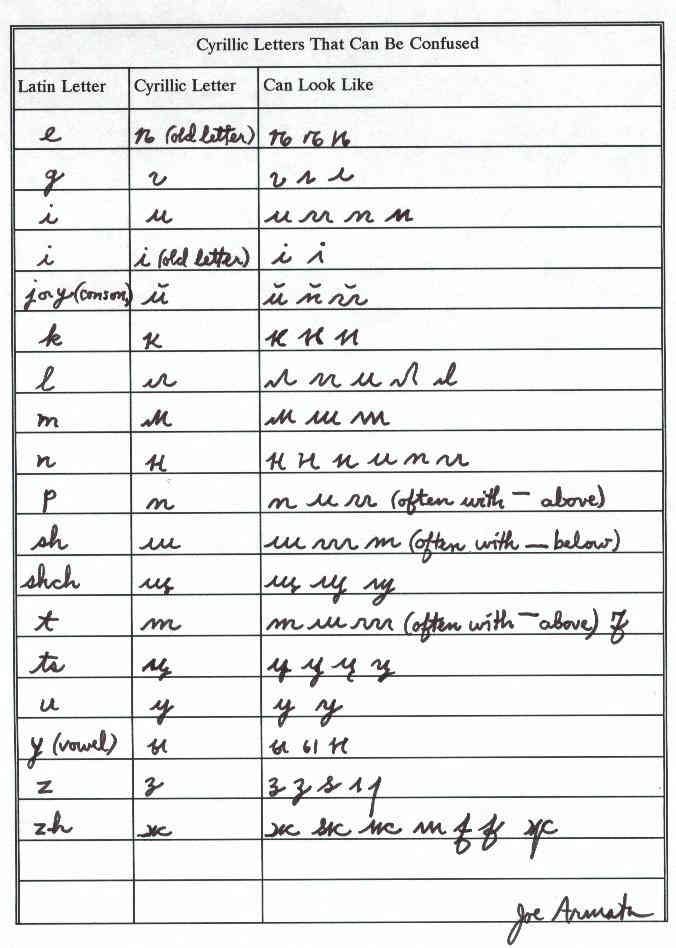 Cyrillic Letters That Can Be Confused
Latin Letter Cyrillic Letter Can Look Like
e ѣ (old letter) ѣ ѣ ѣ
g г г г г
i и и и и и
i i (old letter) i i
j or y (conson.) й й й й
k к к к к
l л л л л л л
m м м м м
n н н н н н н н
p п п п п (often with — above)
sh ш ш ш ш (often with — below)
shch щ щ щ щ
t т т т т (often with — above) т
ts ц ц ц ц ц
u у у у
y (vowel) ы ы ы ы
z з з з з з з
zh ж ж ж ж ж ж ж ж
Joe Armata